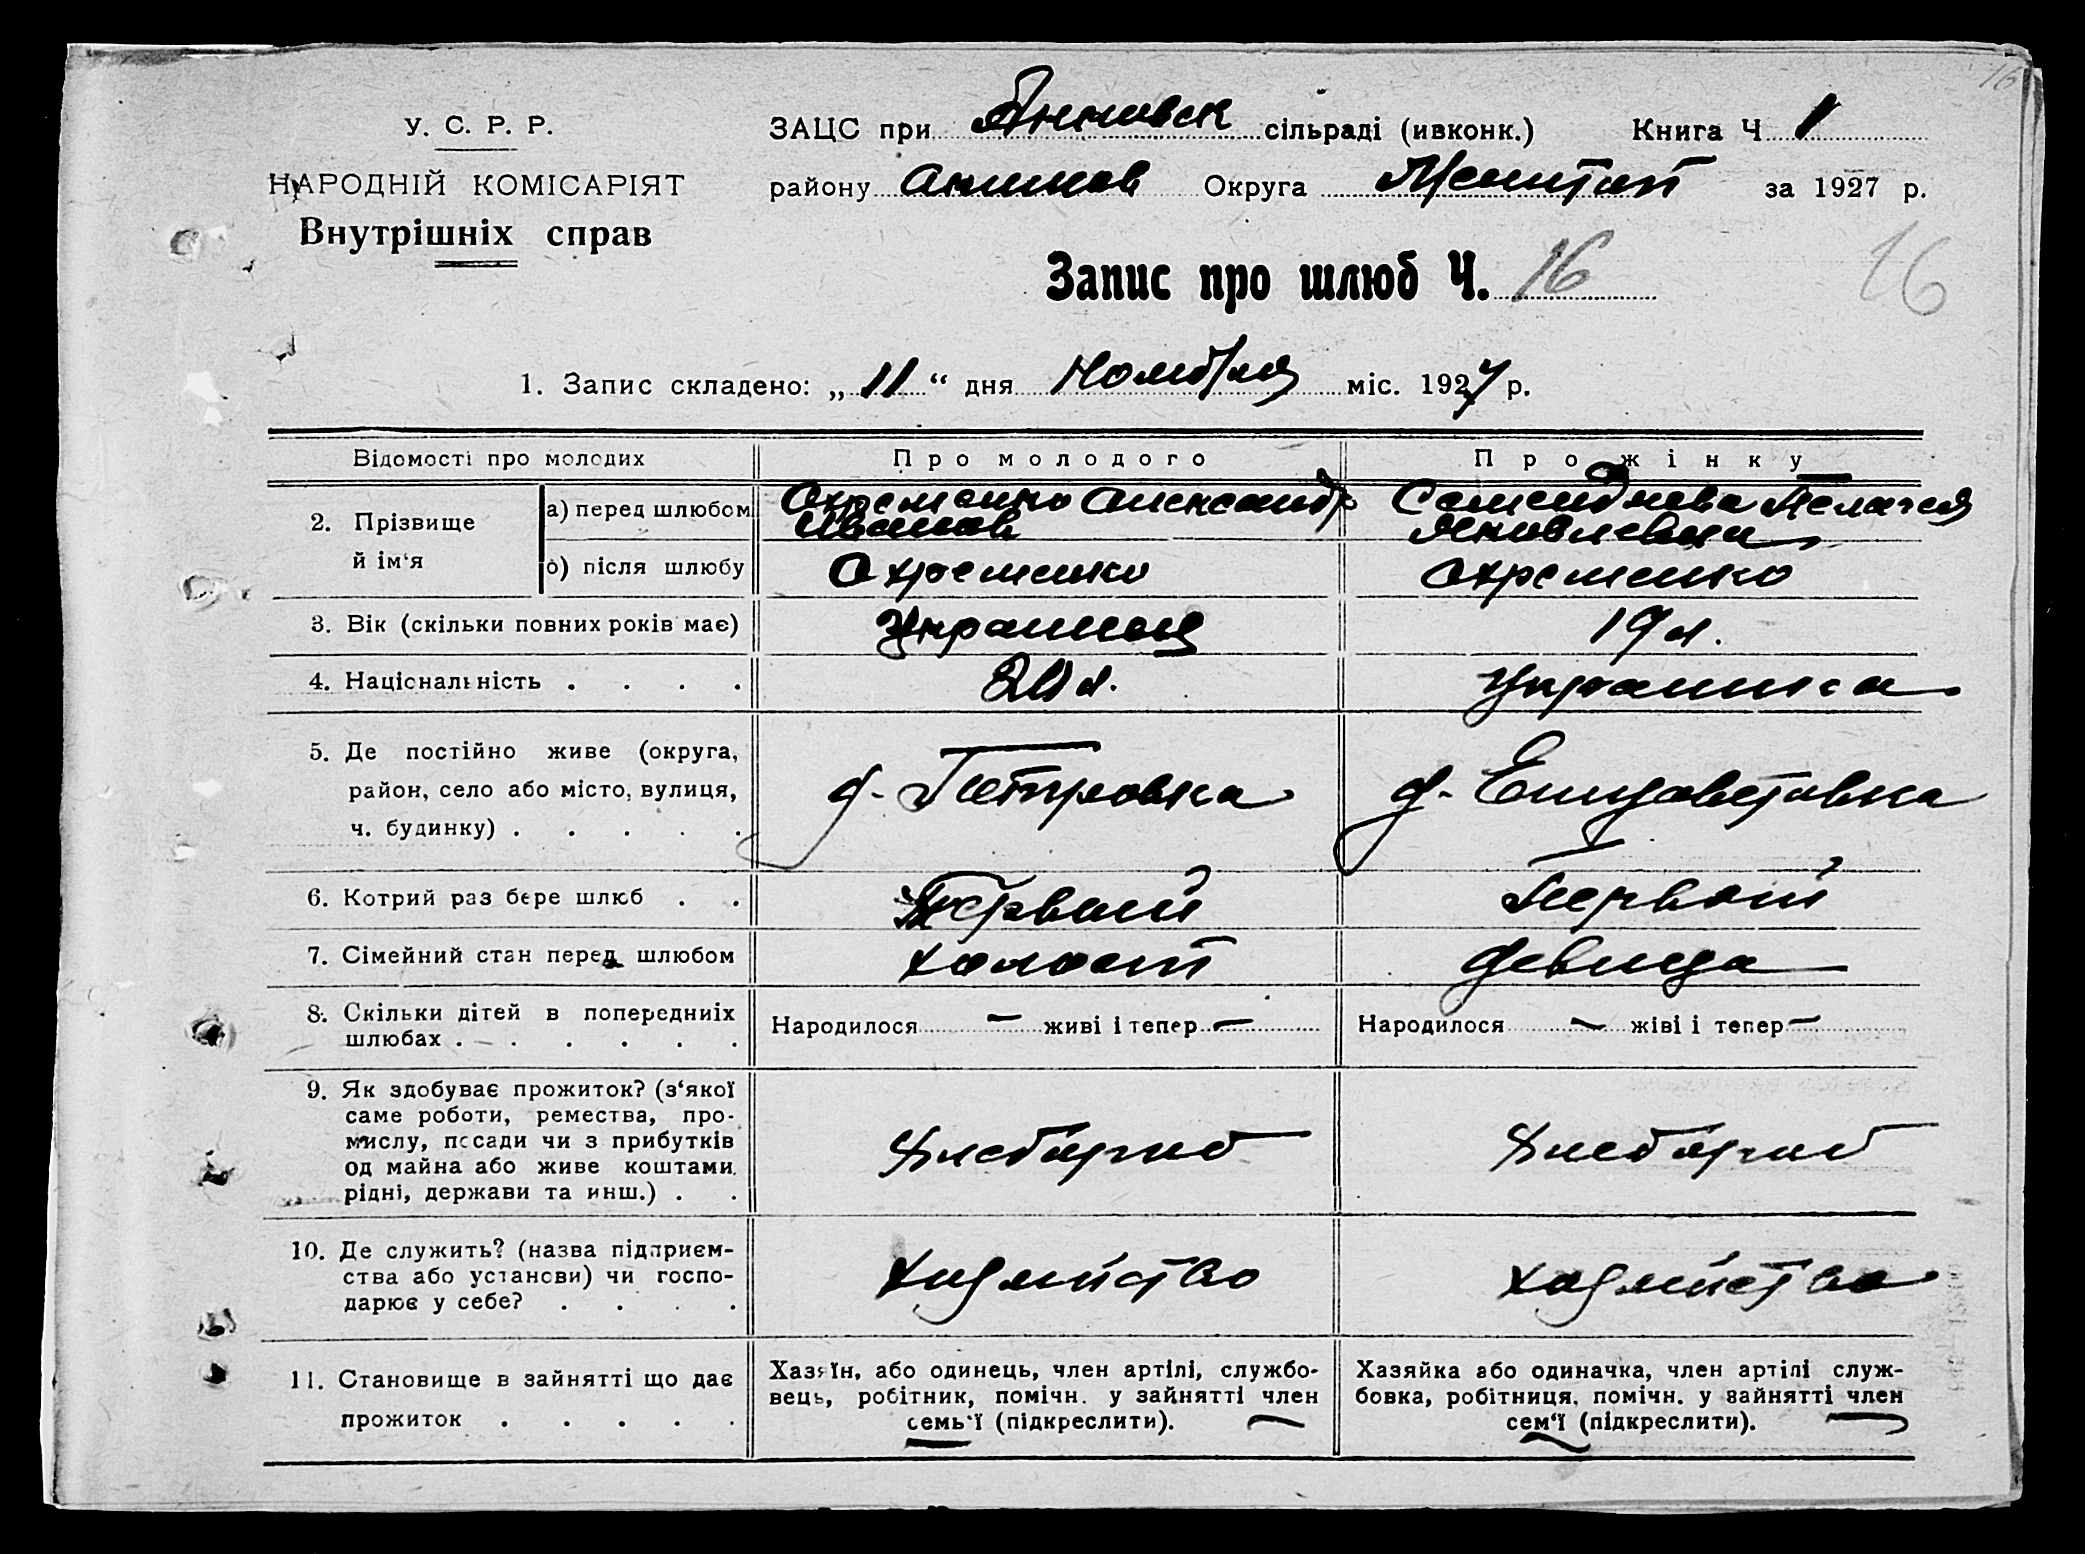 16
У. С. Р. Р.
НАРОДНІЙ КОМІСАРІЯТ
Внутрішніх справ
ЗАЦС при Анновск сільраді (ивконк.) Книга Ч 1
району Округа за 1927 р.
Запис про шлюб Ч. 16
16
1. Запис складено: „11“ дня Ноября міс. 1927 р.
Відомості про молодих Про молодого Про жінку
2. Прізвище й ім‘я
а) перед шлюбом Охременко Александр Иванов Пелагея Яковлевна
б) після шлюбу Охременко Охременко
3. Вік (скільки повних років має) Украинец 19 л.
4. Національність . . . . 20 л. Украинка
5. Де постійно живе (округа,
район, село або місто, вулиця,
ч. будинку) . . . . .
д. Петровка д. Елизаветовка
6. Котрий раз бере шлюб . . Первый Первый
7. Сімейний стан перед шлюбом холост девица
8. Скільки дітей в попередниіх
шлюбах . — . . . . .
Народилося — живі і тепер — Народилося — жіві і тепер —
9. Як здобуває прожиток? (з‘якої
саме роботи, ремества, про-
мислу, посади чи з прибутків
од майна або живе коштами
рідні, держави та инш.) . .
Хлебороб Хлебороб
10. Де служить? (назва підприєм-
ства або установи) чи госпо-
дарює у себе? . . . .
хозяйство хозяйство
11. Становище в зайнятті що дає
прожиток . . . . .
Хазяїн, або одинець, член артілі, службо-
вець, робітник, помічн. у зайнятті член
семь‘ї (підкреслити).
Хазяйка або одиначка, член артілі служ-
бовка, робітниця, помічн. у зайнятті член
сем‘ї (підкреслити).